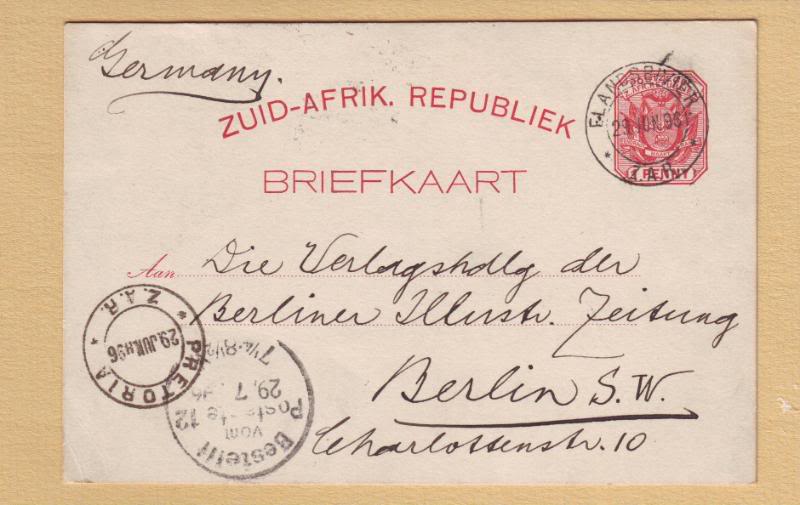 Germany.
ZUID-AFRIK. REPUBLIEK
BRIEFKAART
ELANDSRIVIER
29 JUN. 96
Z.A.R.
1 PENNY
Aan Die Verlagshdlg der
Berliner Illustr. Zeitung
Berlin S.W.
Charlottenstr. 10
PRETORIA
29 JUN. 96
Z.A.R.
Bestellt
vom
Postamte 12
29. 7. 96
7¼-8½